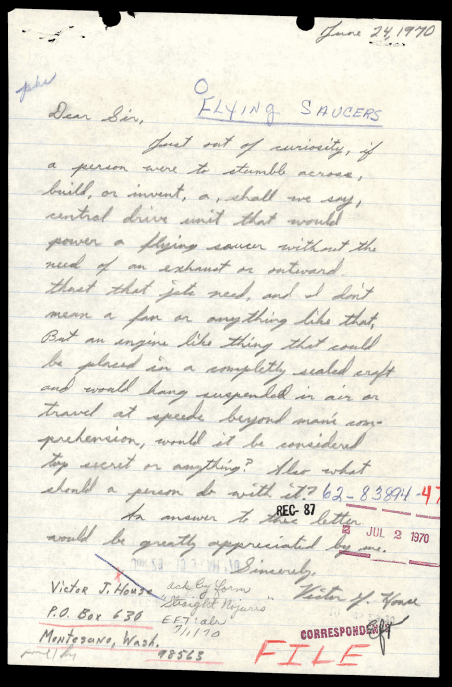 June 24, 1970
O
FLYING SAUCERS
Dear Sir,
Just out of curiosity, if
a person were to stumble across,
build, or invent, a, shall we say,
central drive unit that would
power a flying saucer without the
need of an exhaust or outward
thust that jets need, and I don't
mean a fan or anything like that,
But an engine like thing that could
be placed in a completly sealed craft
and would hang suspended in air or
travel at speeds beyond man's com-
prehension, would it be considered
top secret or anything? Also what
should a person do with it? 62-83894-47
REC- 87
An answer to this letter
would be greatly appreciated by me.
JUL 2 1970
Sincerely,
Victor J. House
Victor J. House
P.O. Box 630
Montesano, Wash.
98563
ack by form
"Straight
EFT:
7/1/70
CORRESPONDENCE
FILE